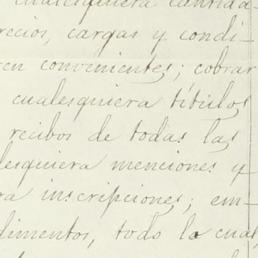 cualesquiera cantida-
recios, cargas y condi-
ren convenientes; cobrar
cualesquiera títulos
recibos de todas las
lesquiera menciones y
ra inscripciones; em-
dimentos, todo lo cual